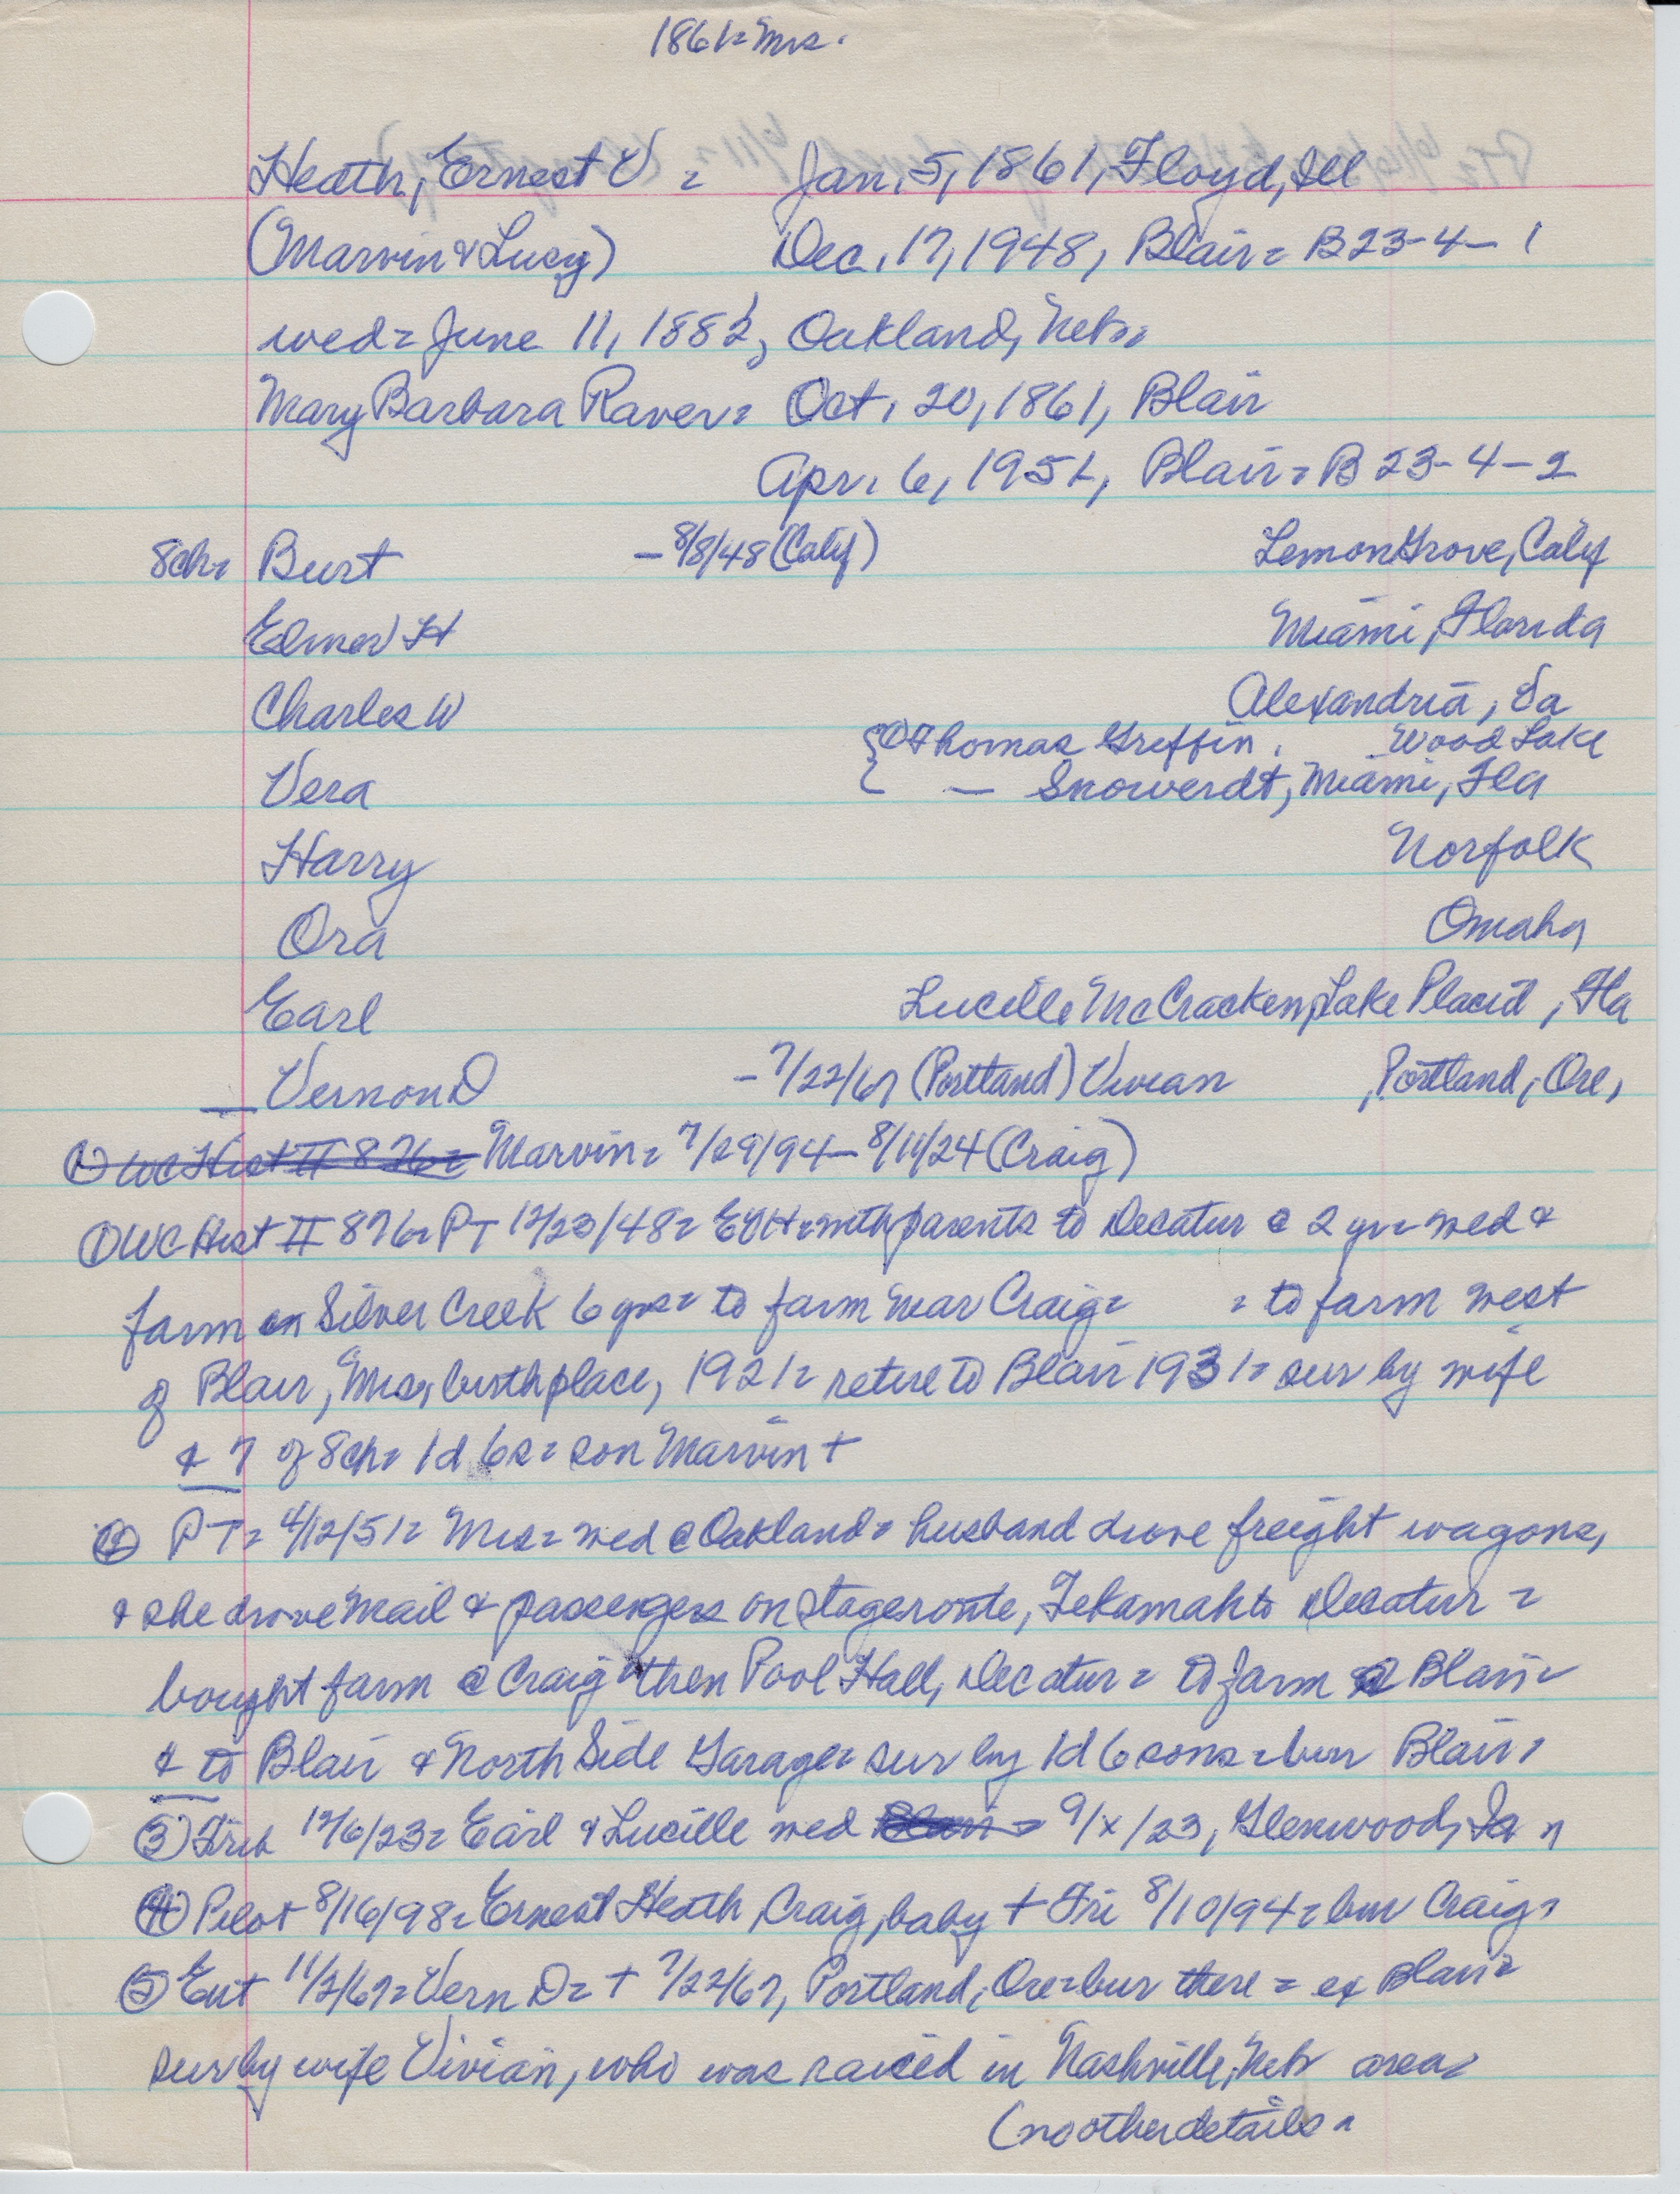 1861= Mrs.
Heath, Ernest V = Jan. 5, 1861, Floyd, Ill
(Marvin & Lucy) Dec. 17, 1948, Blair = B23-4-1
wed = June 11, 1882, Oakland, Nebr.
Mary Barbara Raver = Oct. 20, 1861, Blair
Apr. 6, 1951, Blair = B 23-4-2
8ch= Burt - 8/8/48 (Calif) Lemon Grove, Calif
Elmer H Miami, Florida
Charles W Alexandria, Va
{① Thomas Griffin, Wood Lake
Vera { — Snowerdt, Miami, Fla
Harry Norfolk
Ora Omaha
Earl Lucille McCracken, Lake Placid, Fla
Vernon D - 7/22/67 (Portland) Vivian , Portland, Ore,
① WC Hist II 876= Marvin = 7/29/94 - 8/11/24 (Craig)
① WC Hist II 876= PT 12/23/48= EVH= with parents to Decatur @ 2 yr= wed &
farm on Silver Creek 6 yrs= to farm near Craig= = to farm west
of Blair, Mrs, birthplace, 1921= retire to Blair 1931= sur by wife
& 7 of 8ch= 1d 6s= son Marvin +
② PT= 4/12/51= Mrs= wed @ Oakland= husband drove freight wagons,
& she drove mail & passengers on stageroute, Tekamah to Decatur =
bought farm @ Craig then Pool Hall, Decatur = to farm @ Blair=
& to Blair & North Side Garage= sur by 1d 6 sons= bur Blair=
③ Trib 12/6/23= Earl & Lucille wed Blair = 9/x/23, Glenwood, Ia =
④ Pilot 8/16/98= Ernest Heath, Craig, baby + Fri 8/10/94= bur Craig=
⑤ Ent 11/2/67= Vern D= + 7/22/67, Portland, Ore= bur there = ex Blair=
sur by wife Vivian, who was raised in Nashville, Nebr area=
(no other details=